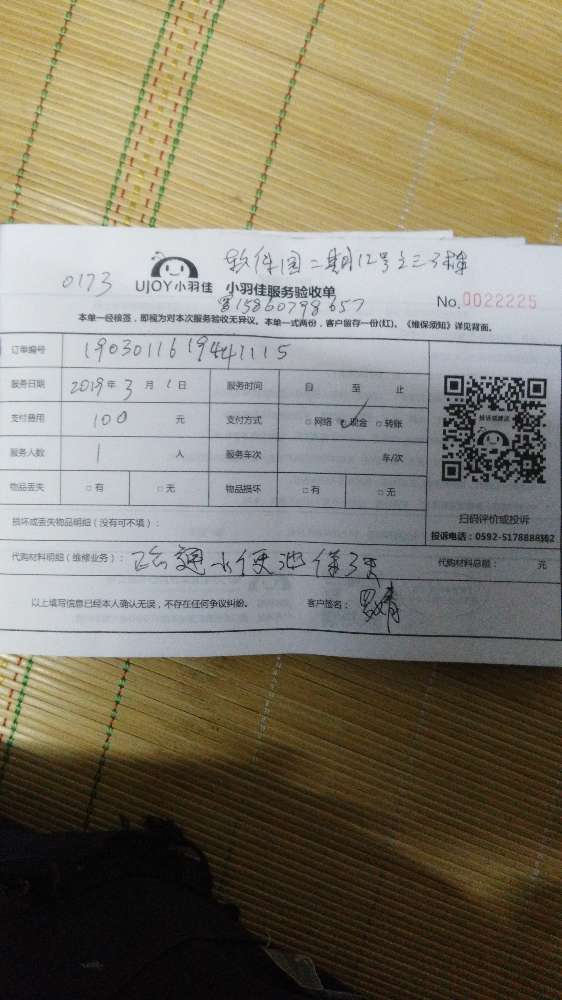 软件园二期12号之三3梯
0173 UJOY小羽佳 小羽佳服务验收单
15860798657 No.0022225
本单一经核签，即视为对本次服务验收无异议。本单一式两份，客户留存一份(红)。《维保须知》详见背面。
订单编号 19030116194
服务日期 2019年3月1日 服务时间 自 至 止
支付费用 100 元 支付方式 □网络 ✓现金 □转账
服务人数 1 人 服务车次 车/次
物品丢失 □有 □无 物品损坏 □有 □无
扫码评价或投诉
损坏或丢失物品明细（没有可不填）：
投诉电话：0592-5178888转2
代购材料明细（维修业务）： 疏通小便池保3天 代购材料总额： 元
以上填写信息已经本人确认无误，不存在任何争议纠纷。 客户签名：